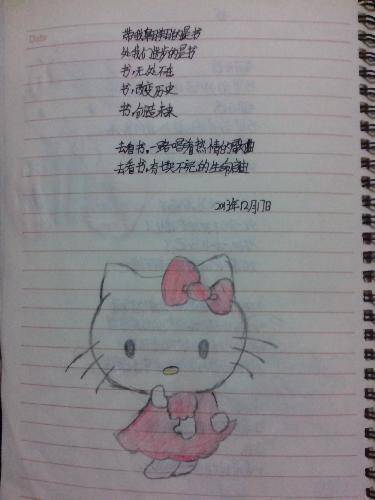 Date
带我翱翔的是书
令我们进步的是书
书,无处不在
书,改变历史
书,创造未来
去看书,一路唱着热情的歌曲
去看书,有块不死的生命
2013年12月17日